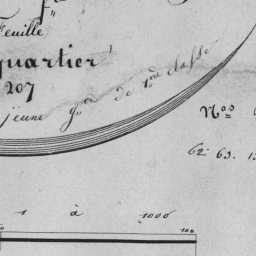 Feuille
quartier
207
jeune g.on de 1ere classe
Nos
62. 63. 1
1 à 1000
100